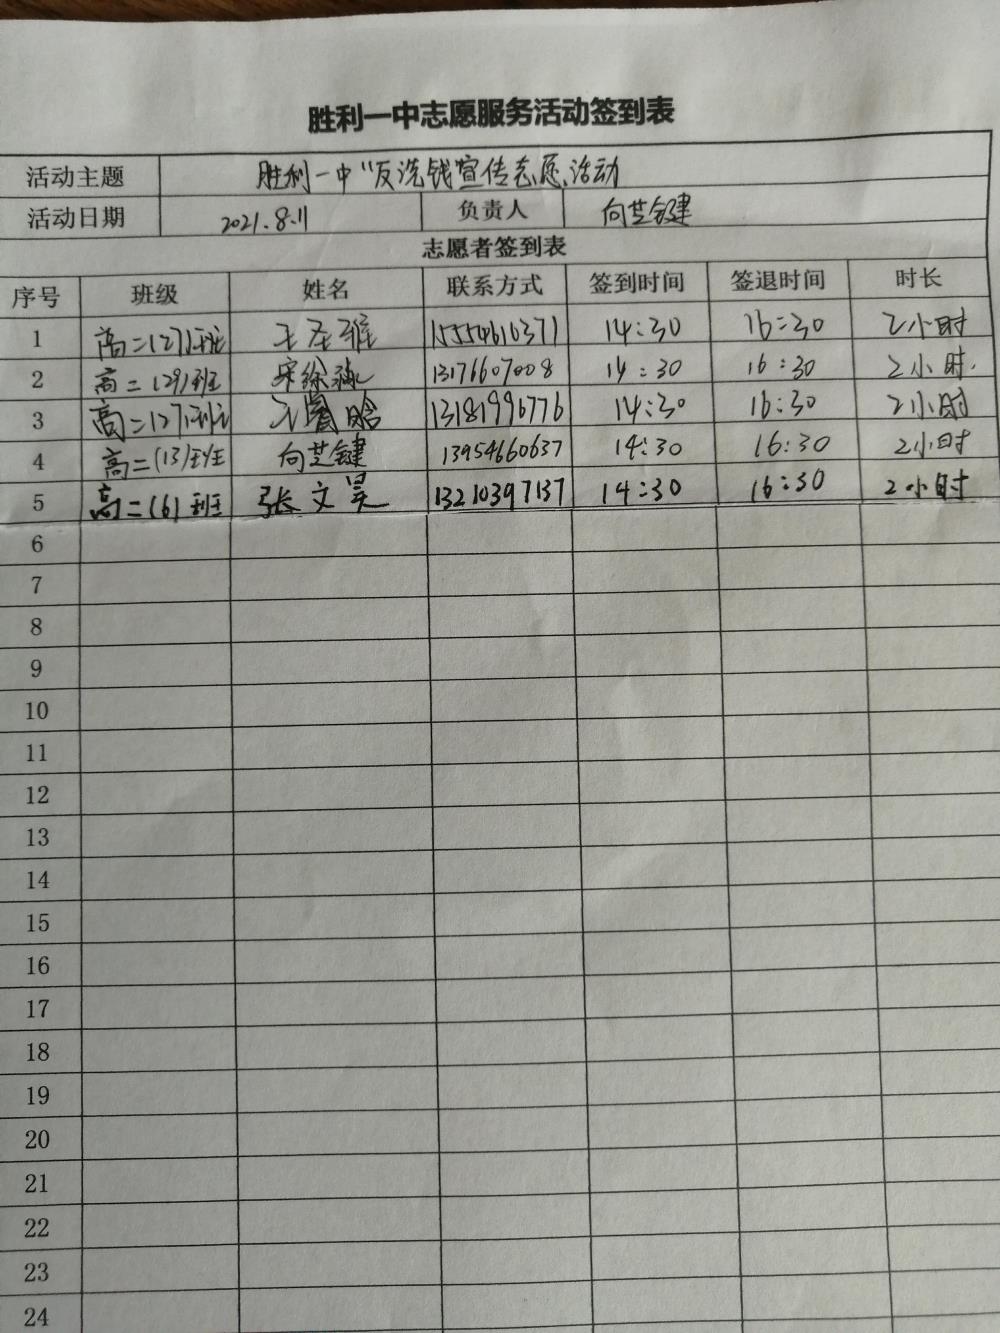 胜利一中志愿服务活动签到表
活动主题 胜利一中"反洗钱宣传志愿活动
活动日期 2021.8.11 负责人 向芝键
志愿者签到表
序号 班级 姓名 联系方式 签到时间 签退时间 时长
1 高二(27)班 王圣雅 15554610371 14:30 16:30 2小时
2 高二(29)班 宋徐 13176607008 14:30 16:30 2小时.
3 高二(27)班 王 晗 13181996776 14:30 16:30 2小时
4 高二(13)班 向芝键 13954660637 14:30 16:30 2小时
5 高二(6)班 张文昊 13210397137 14:30 16:30 2小时
6
7
8
9
10
11
12
13
14
15
16
17
18
19
20
21
22
23
24